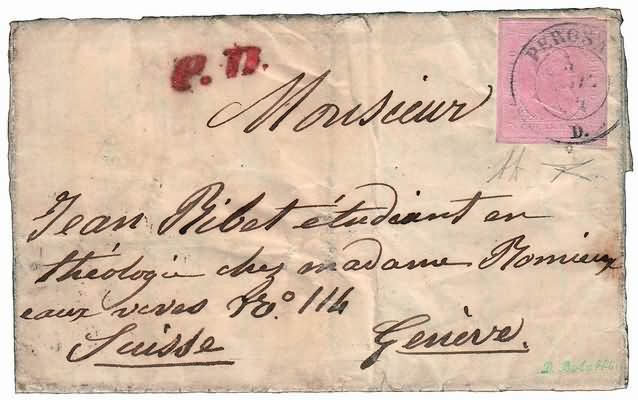 P. D.
PEROSA
D.
Monsieur
Jean Ribet étudiant en
théologie chez madame Romieux
eaux vives No. 114
Suisse Genève.